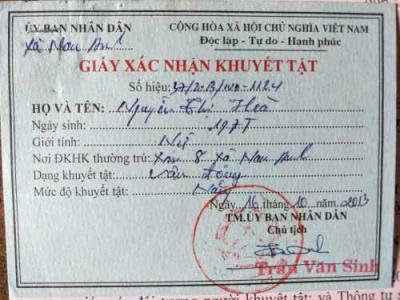 ỦY BAN NHÂN DÂN
Xã Nam Anh
CỘNG HÒA XÃ HỘI CHỦ NGHĨA VIỆT NAM
Độc lập - Tự do - Hạnh phúc
GIẤY XÁC NHẬN KHUYẾT TẬT
Số hiệu:
HỌ VÀ TÊN: Nguyễn Thị Hoà
Ngày sinh: 1977
Giới tính: Nữ
Nơi ĐKHK thường trú: Xóm 8 xã Nam Anh
Dạng khuyết tật: Vận động
Mức độ khuyết tật: Nặng
Ngày 16 tháng 10 năm 2013
TM.ỦY BAN NHÂN DÂN
Chủ tịch
Trần Văn Sinh
người khuyết tật; và Thông tư